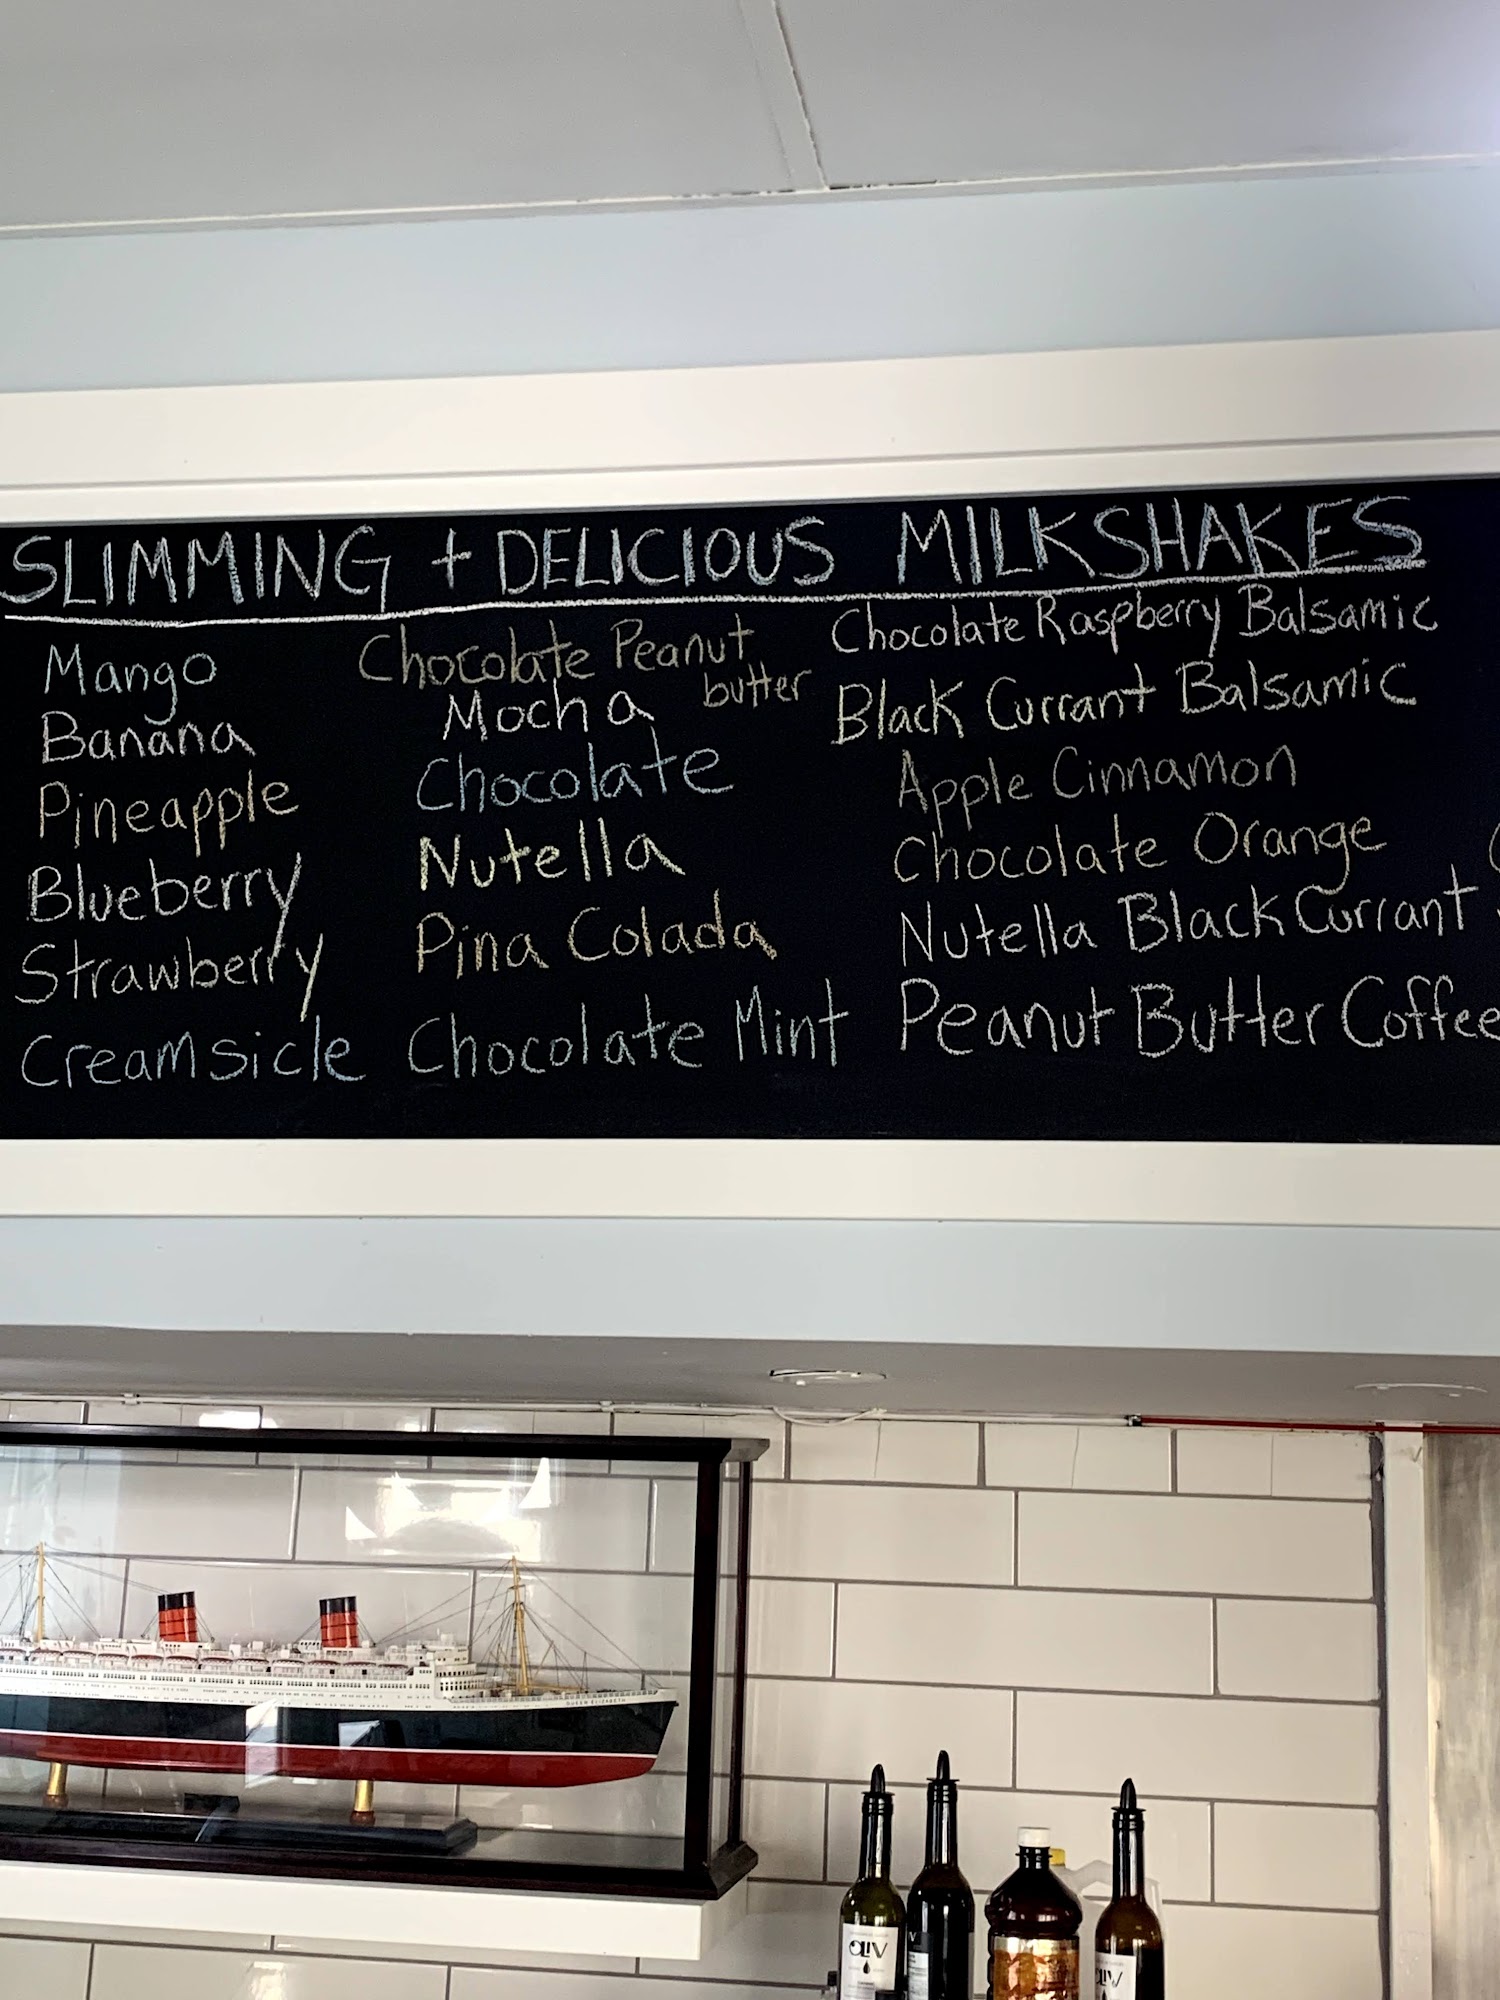 SLIMMING + DELICIOUS MILKSHAKES
Mango
Banana
Pineapple
Blueberry
Strawberry
Creamsicle
Chocolate Peanut
butter
Mocha
Chocolate
Nutella
Pina Colada
Chocolate Mint
Chocolate Raspberry Balsamic
Black Currant Balsamic
Apple Cinnamon
Chocolate Orange
Nutella Black Currant
Peanut Butter Coffee
QUEEN ELIZABETH
OLIV
OLIV